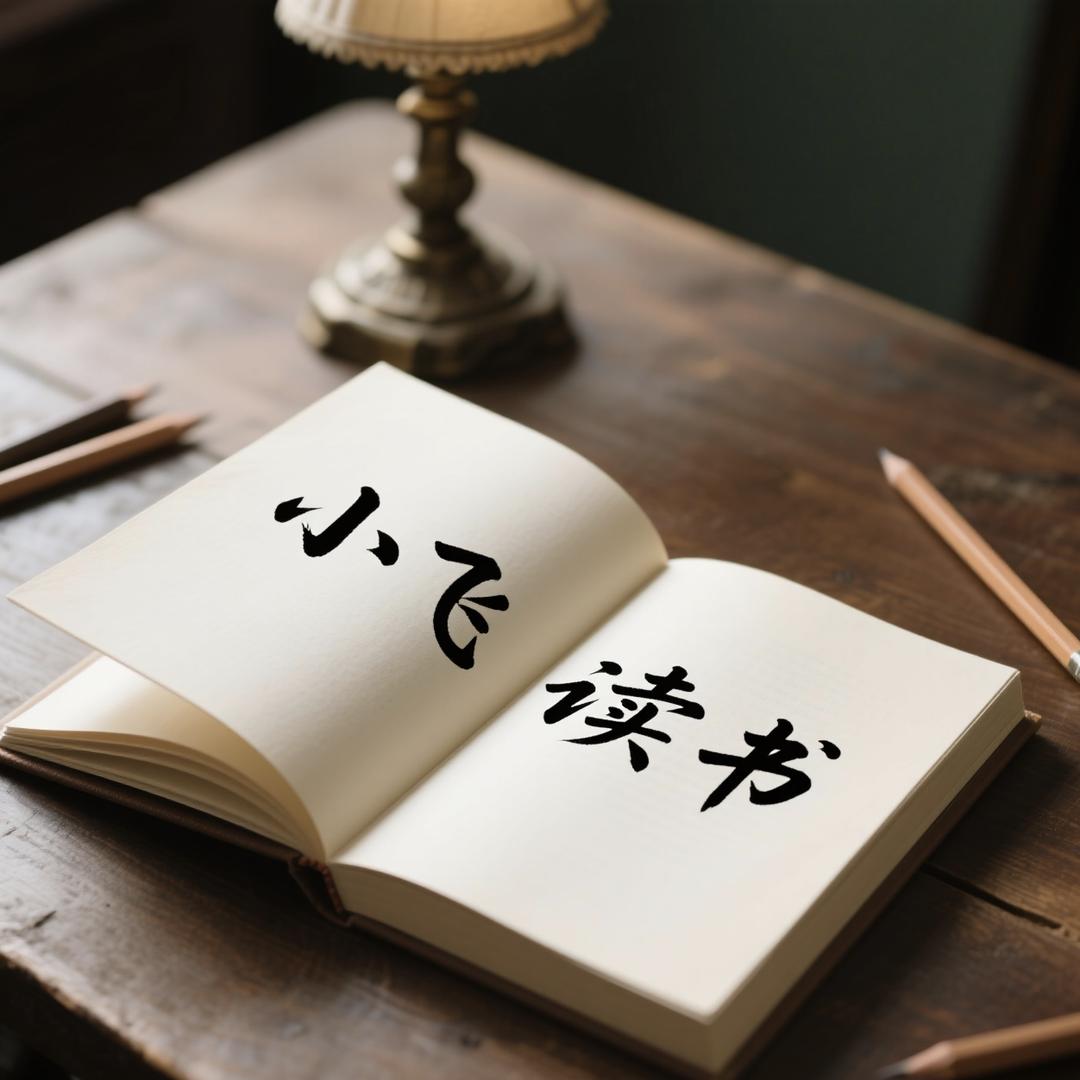 小飞
读书